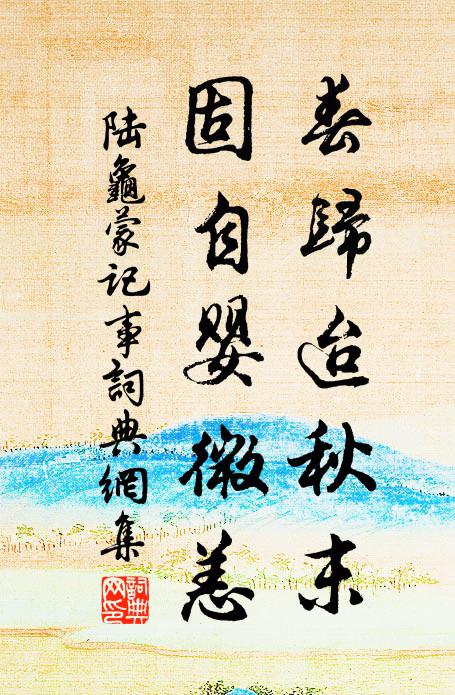 春歸迨秋末
固自嬰微恙
陸龜蒙記事詞典網集
詞典網印